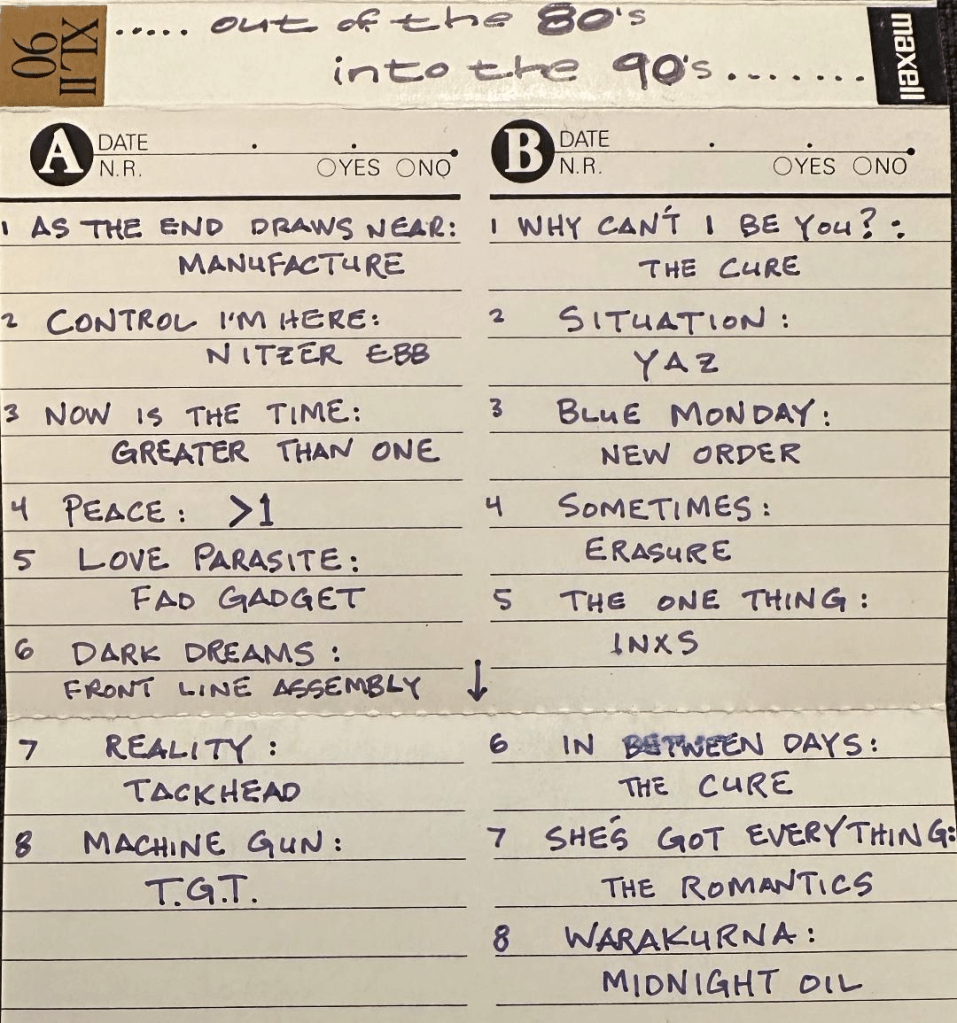 XL II 90
..... out of the 80's
into the 90's.......
maxell
A DATE
N.R. YES NO
1 AS THE END DRAWS NEAR:
MANUFACTURE
2 CONTROL I'M HERE:
NITZER EBB
3 NOW IS THE TIME:
GREATER THAN ONE
4 PEACE: >1
5 LOVE PARASITE:
FAD GADGET
6 DARK DREAMS:
FRONT LINE ASSEMBLY ↓
7 REALITY:
TACKHEAD
8 MACHINE GUN:
T.G.T.
B DATE
N.R. YES NO
1 WHY CAN'T I BE YOU?:
THE CURE
2 SITUATION:
YAZ
3 BLUE MONDAY:
NEW ORDER
4 SOMETIMES:
ERASURE
5 THE ONE THING:
INXS
6 IN BETWEEN DAYS:
THE CURE
7 SHE'S GOT EVERYTHING:
THE ROMANTICS
8 WARAKURNA:
MIDNIGHT OIL